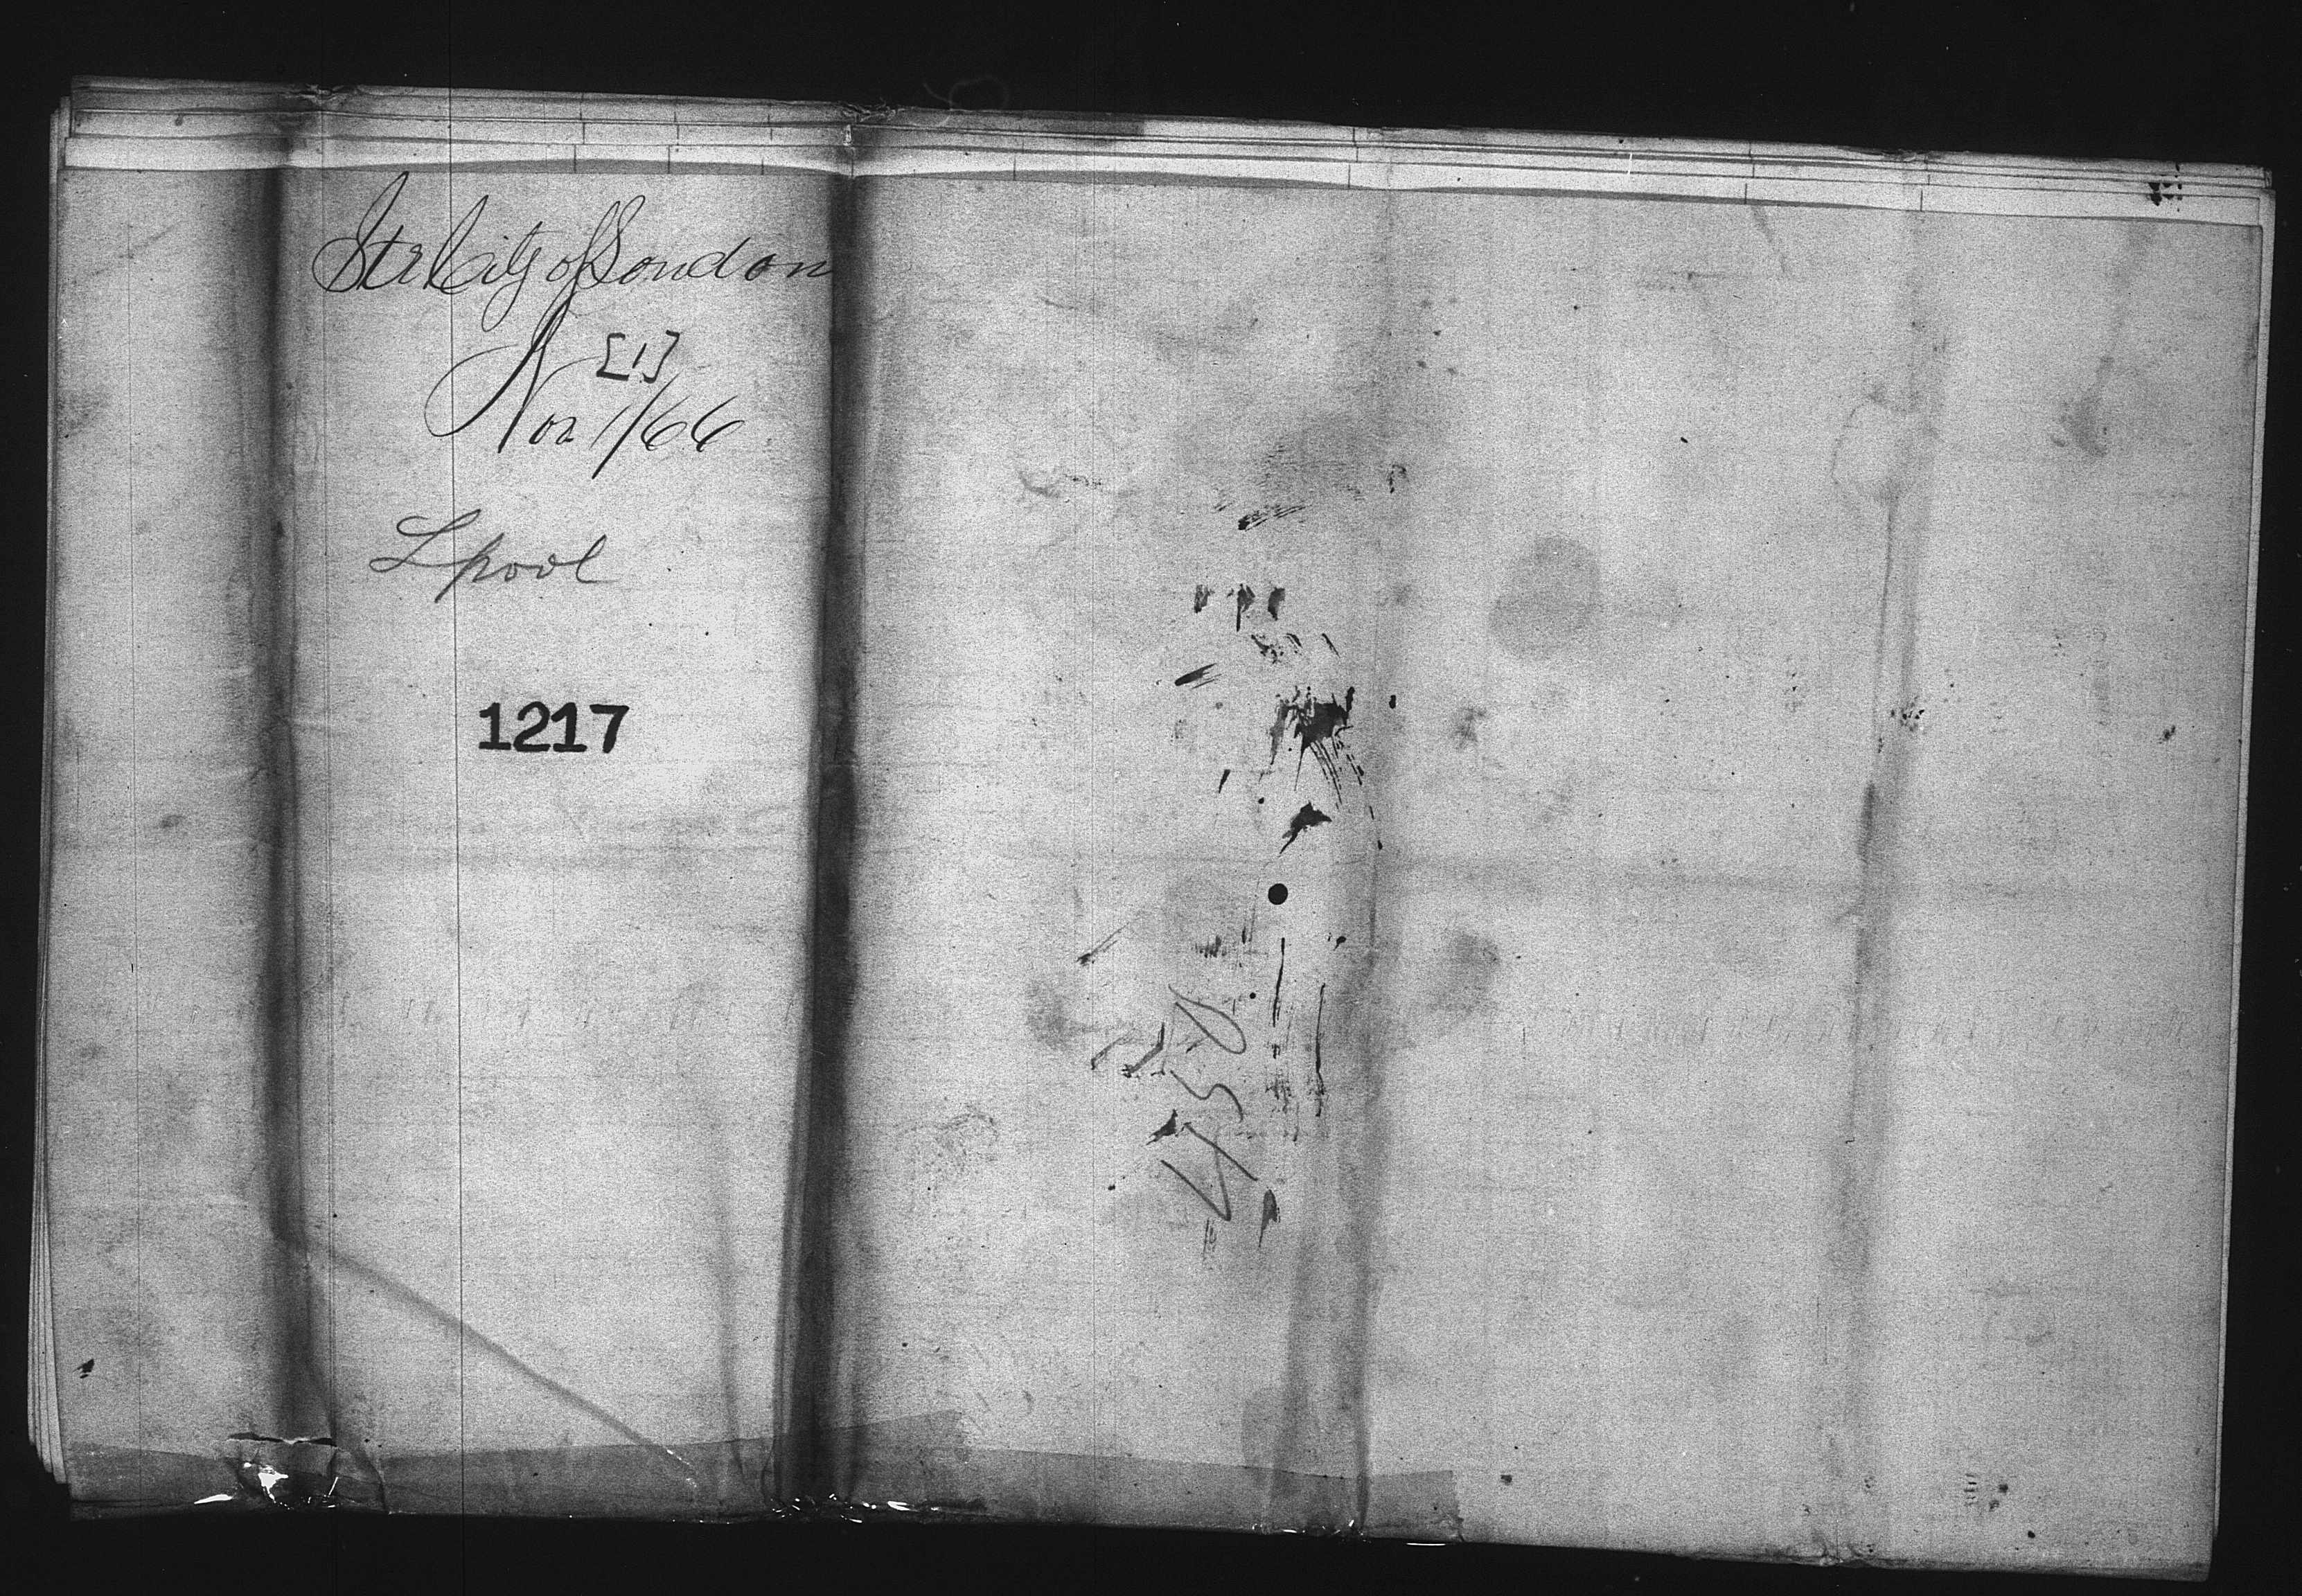 Str City of London
[1]
Nov 1/66
Lpool
1217
450